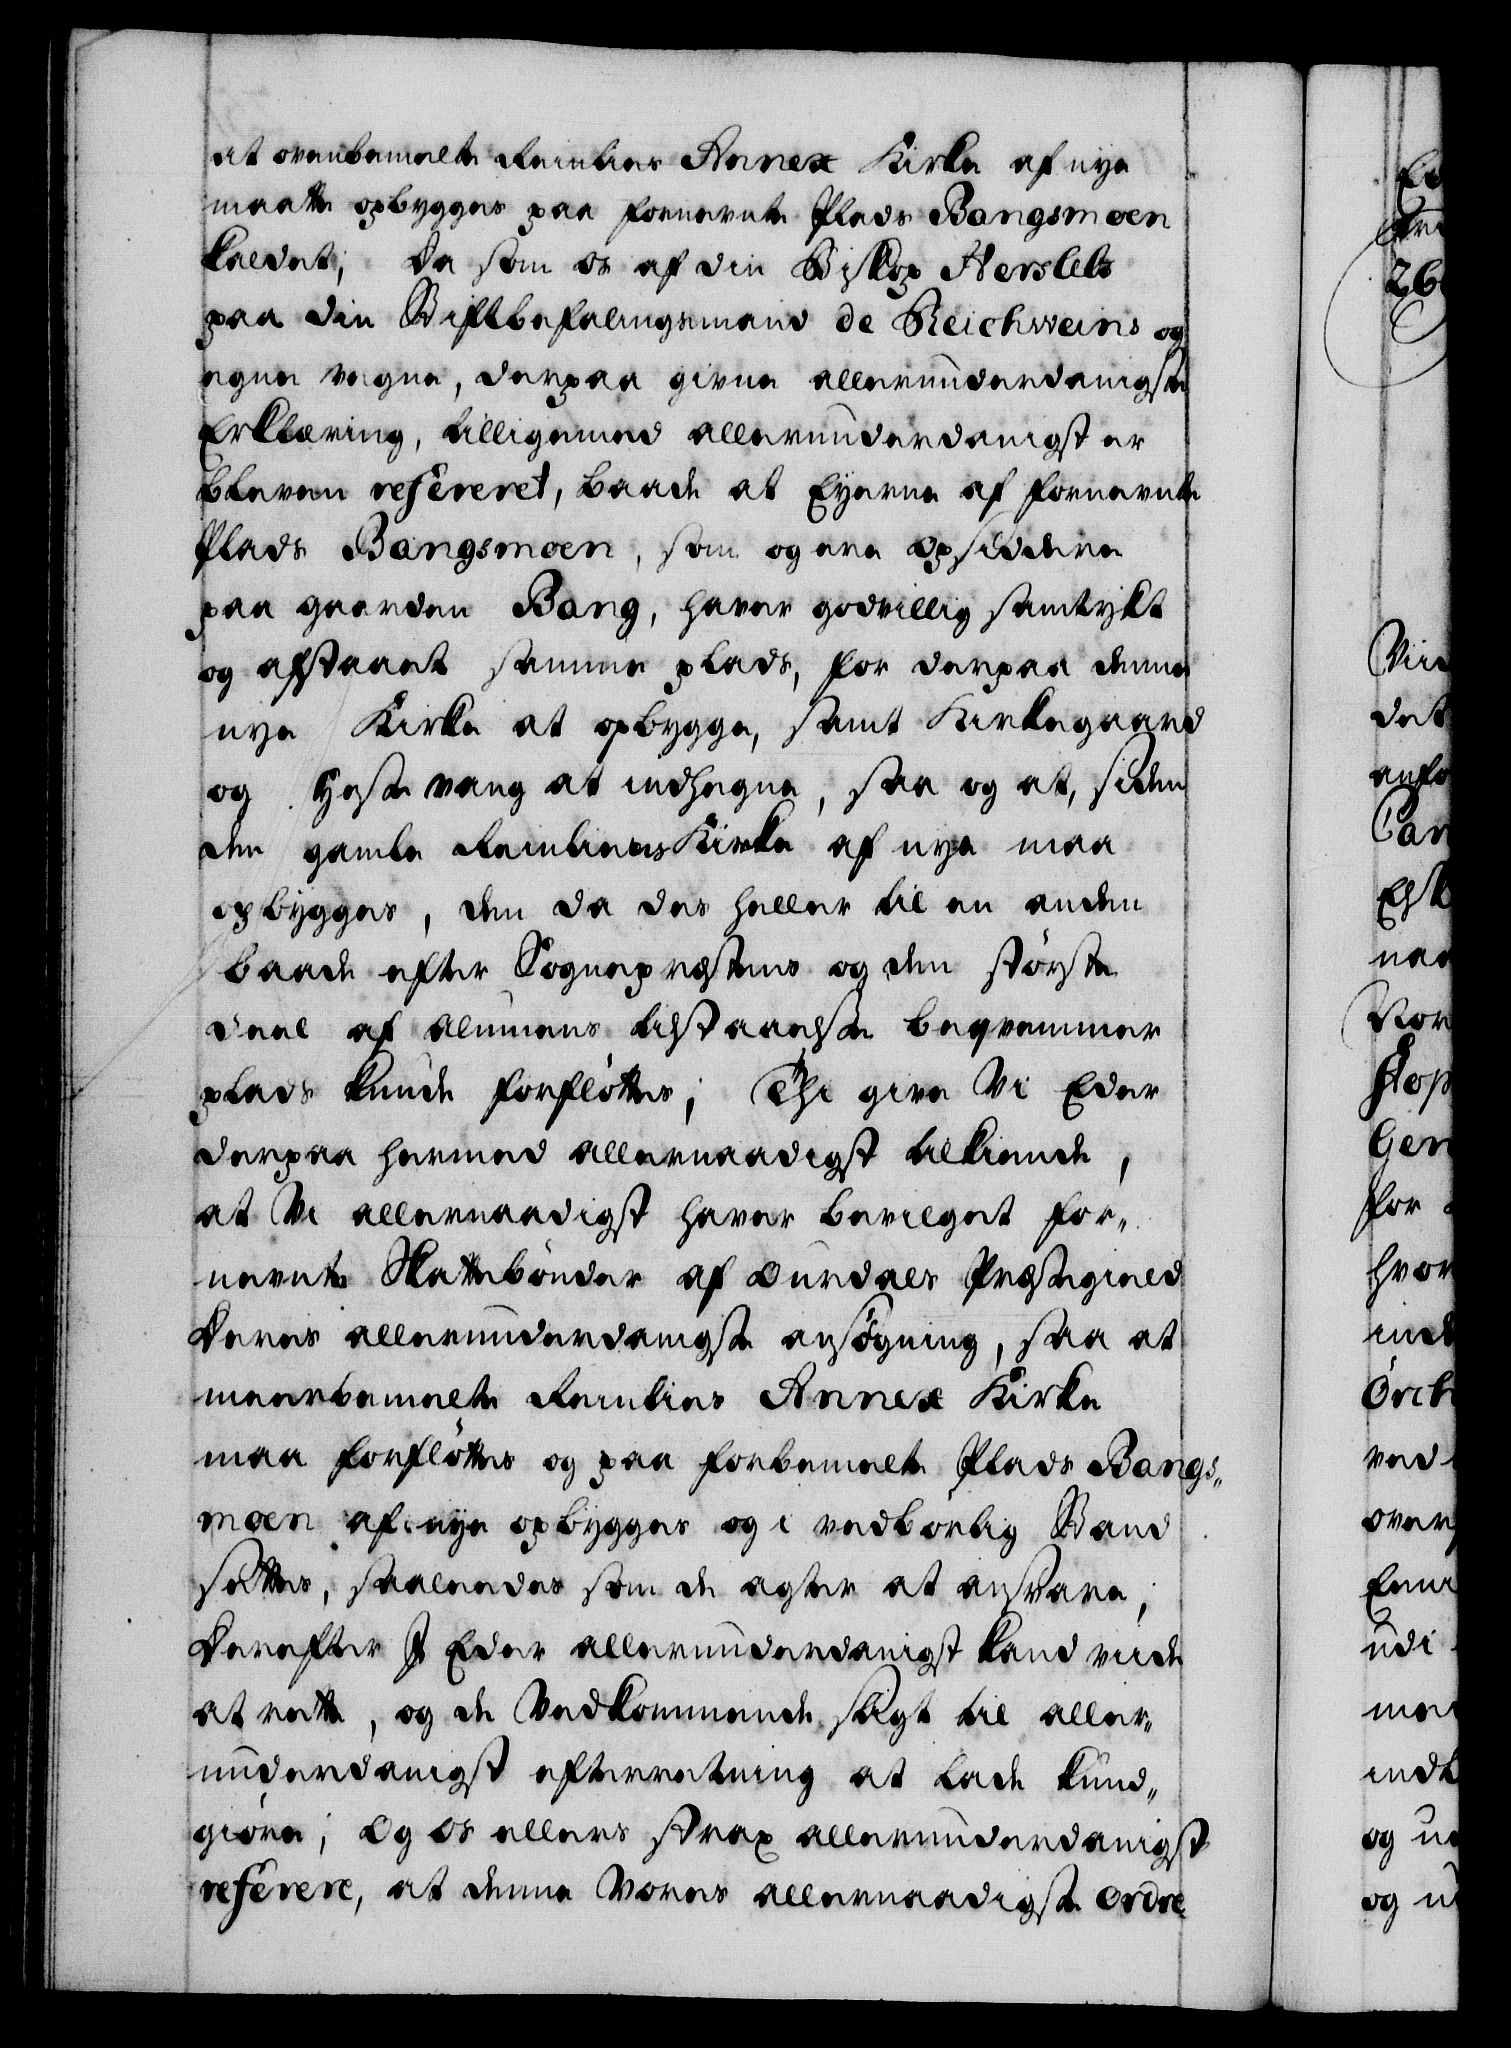 at ovenbemelte Reinlies Annex Kirke af nye
maatte opbygges paa fornevnte Plads Bangsmoen
kaldet; Da som os af din Biskop Herslebs
paa din Stiftbefalingsmand de Reichweins og
egne vegne, derpaa givne allerunderdanigste
Erklæring, tilligemed allerunderdanigst er
bleven refereret, baade at Eyerne af fornevnte
Plads Bangsmoen, som og ere Opsiddere
paa gaarden Bang, haver godvillig samtykt
og afstaaet samme plads, for derpaa denne
nye Kirke at opbygge, samt Kirkegaard
og Hæste vang at indhegne, saa og at, siden
den gamle Reinliens Kirke af nye maa
opbygges, den da des heller til en anden
baade efter Sognepræstens og den störste
deel af Almuens tilstaaelse beqvemmer
plads kunde forflöttes; Thi give Vi Eder
derpaa hermed allernaadigst tilkiende,
at Vi allernaadigst haver bevilget for„
nevnte Skattebönder af Ourdals Præstegield
deres allerunderdanigste ansögning, saa at
meerbemelte Reinlies Annex Kirke
maa forflöttes og paa forbemelte Plads Bangs„
moen af nye opbygges og i vedbörlig Stand
sættes, saaledes som de agter at ansvare;
Derefter I Eder allerunderdanigst kand viide
at rette, og de Vedkommende sligt til aller„
underdanigst efterretning at lade kund„
giöre; Og Os ellers strax allerunderdanigst
referere, at denne Vores allernaadigste ordre